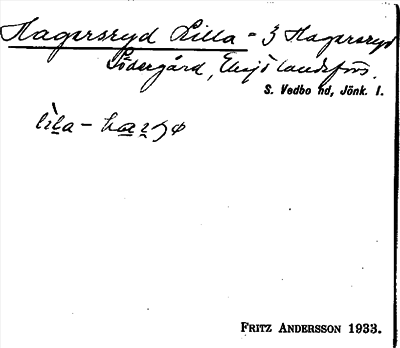 Hagersryd Lilla - 3 Hagersryd
Södergård, Eksjö landsförs.
S. Vedbo hd, Jönk. l.
lìla -
FRITZ ANDERSSON 1933.